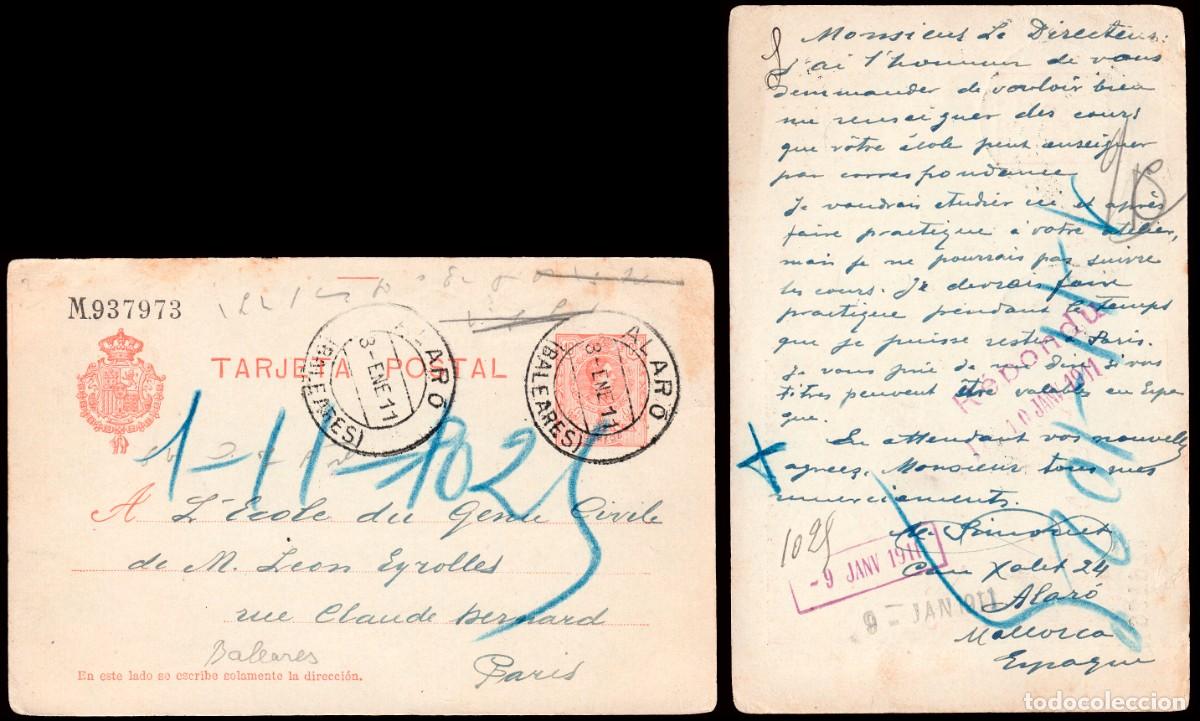 M.937973
TARJETA POSTAL
ALARÓ
3-ENE 11
(BALEARES)
ALARÓ
3-ENE 11
(BALEARES)
1-11-1025
A L'École du Genie Civile
de M. Leon Eyrolles
rue Claude Bernard
Baleares
Paris
En este lado se escribe solamente la dirección.
Monsieur Le Directeur:
J'ai l'honneur de vous
demmander de vouloir bien
me renseigner des cours
que vôtre école peut enseigner
par correspondance
Je voudrais etudier ici et après
faire practique à votre atelier,
mais je ne pourrais pas suivre
les cours. Je devrais faire
practique pendant le temps
que je puisse rester à Paris.
Je vous prie de me dire si vos
titres peuvent être valables en Espa
gne.
En attendant vos nouvelles
agreez, Monsieur tous mes
merciements.
M. Simonet
Can Xalet 24
Alaró
Mallorca
Espagne
Répondu
10 JANV 1911
1025
-9 JANV 1911
9 - JAN 1911
todocoleccion